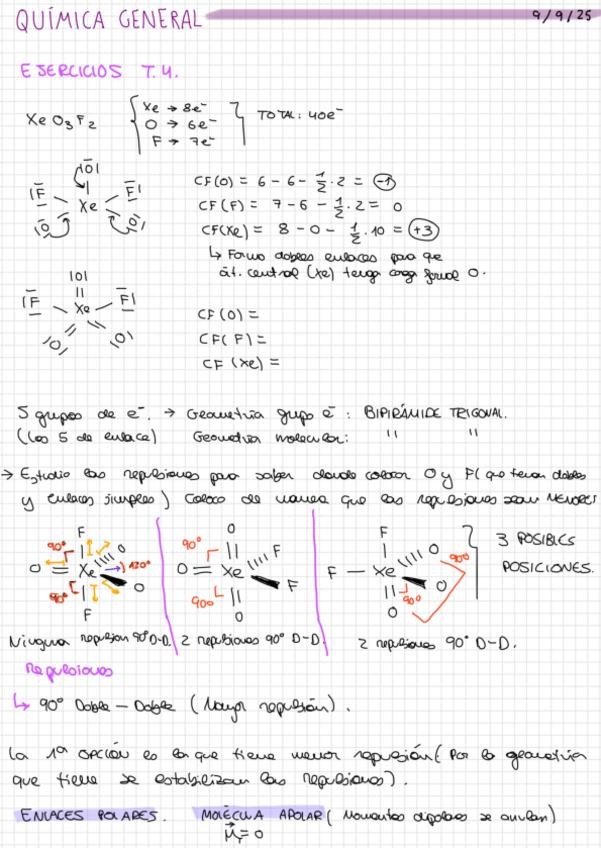 QUÍMICA GENERAL
9/9/25
EJERCICIOS T.4.
XeO3F2
Xe → 8e⁻
O → 6e⁻
F → 7e⁻
TOTAL: 40e⁻
|O|
|F| Xe |F|
|O| |O|
CF(O) = 6 - 6 - 1/2 · 2 = -1
CF(F) = 7 - 6 - 1/2 · 2 = 0
CF(Xe) = 8 - 0 - 1/2 · 10 = +3
↳ Formo dobles enlaces para que
át. central (Xe) tenga carga formal 0.
|O|
|F - Xe - F|
|O| |O|
CF(O) =
CF(F) =
CF(Xe) =
5 grupos de e⁻. → Geometría grupo e⁻: BIPIRÁMIDE TRIGONAL.
(Los 5 de enlace) Geometría molecular: " "
→ Estudio las repulsiones para saber donde colocar O y F (que tienen dobles
y enlaces simples) Coloco de manera que las repulsiones sean MENORES
F
90° O
O = Xe 120°
90° O
F
O
90° F
O = Xe
90° F
O
F
O 90°
F - Xe
90° O
O
3 POSIBLES
POSICIONES.
Ninguna repulsion 90° D-D.
2 repulsiones 90° D-D.
2 repulsiones 90° D-D.
Repulsiones
↳ 90° Doble - Doble (Mayor repulsión).
La 1ª OPCIÓN es la que tiene menor repulsión (Por la geometría
que tiene se estabilizan las repulsiones).
ENLACES POLARES. MOLÉCULA APOLAR (Momentos dipolares se anulan)
μT = 0